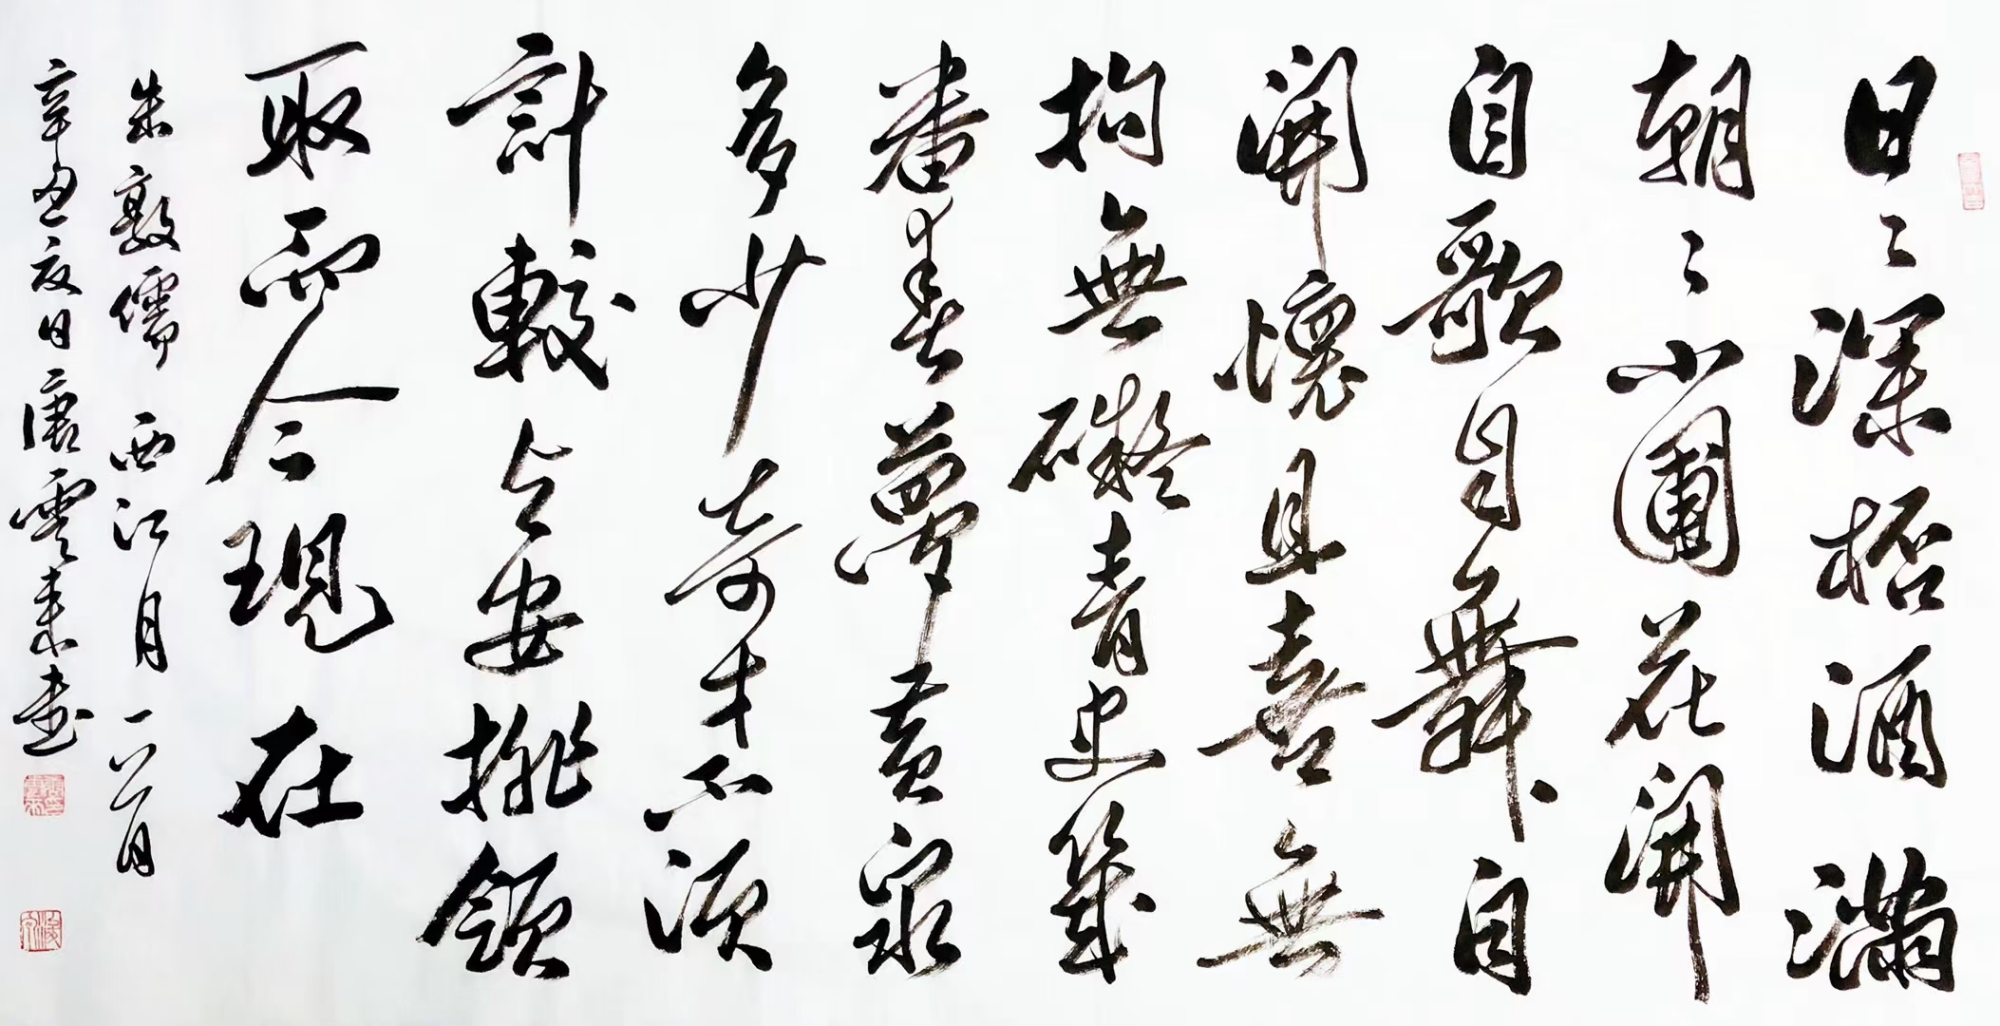 日〻深桮酒滿
朝〻小圃花開
自歌自舞自
開懷且喜無
拘無礙青史幾
番春夢黄泉
多少奇才不須
計較与安排領
取而今現在
朱敦儒 西江月 一首
辛丑夏日唐雲来書